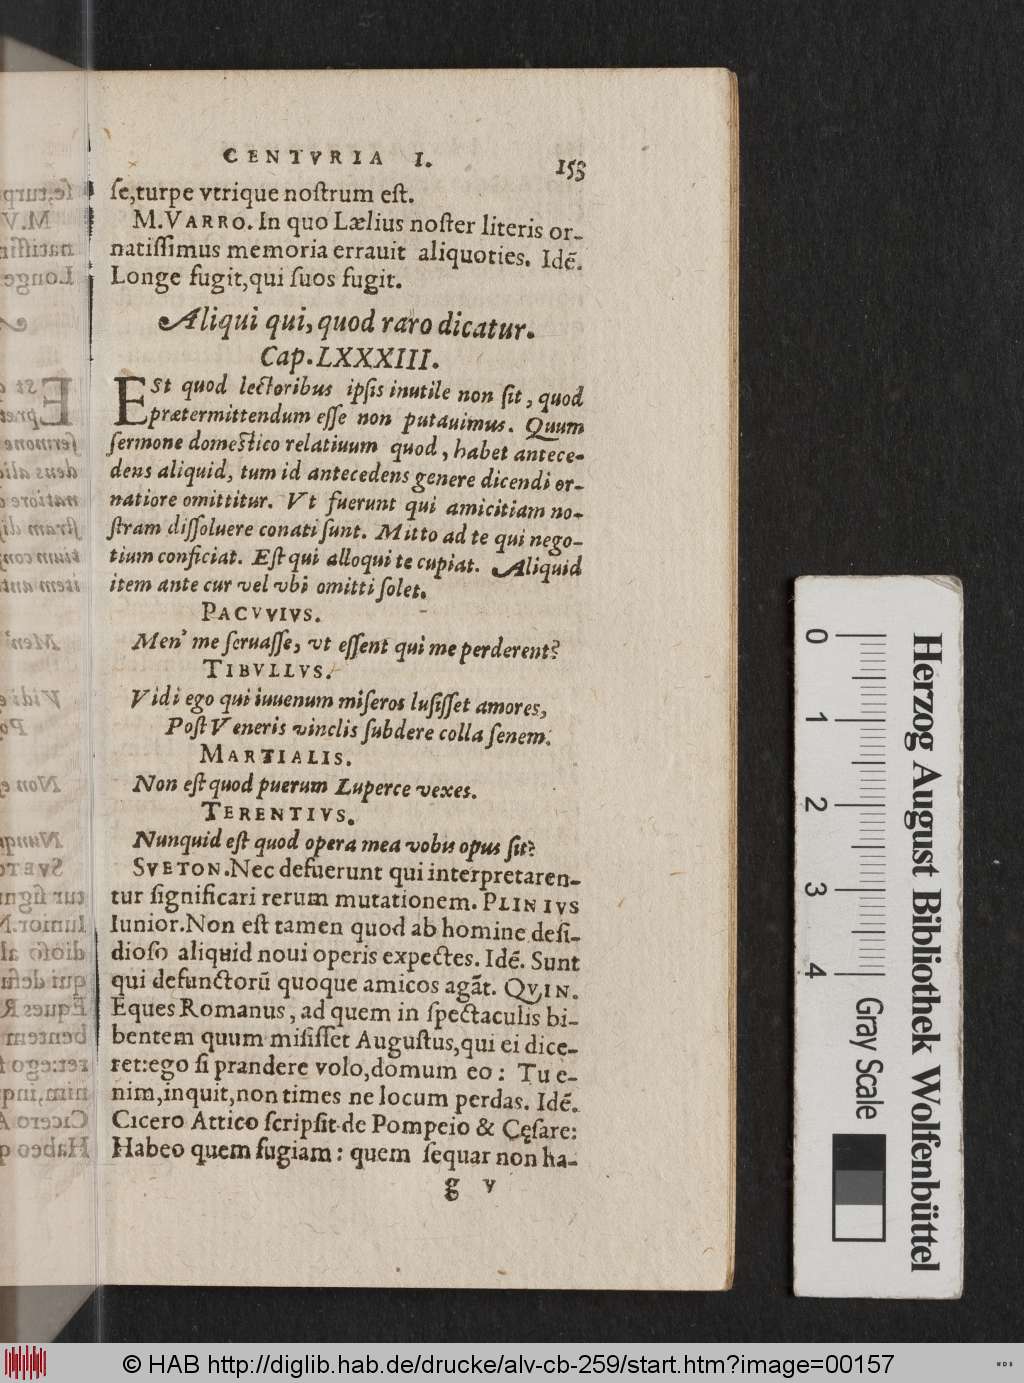 CENTVRIA I. 153
ſe,turpe vtrique noſtrum eſt.
M. VARRO. In quo Lælius noſter literis or-
natiſſimus memoria errauit aliquoties. Idē.
Longe fugit,qui ſuos fugit.
Aliqui qui, quod raro dicatur.
Cap. LXXXIII.
ESt quod lectoribus ipſis inutile non ſit, quod
prætermittendum eſſe non putauimus. Quum
ſermone domeſtico relatiuum quod, habet antece-
dens aliquid, tum id antecedens genere dicendi or-
natiore omittitur. Vt fuerunt qui amicitiam no-
ſtram diſſoluere conati ſunt. Mitto ad te qui nego-
tium conficiat. Eſt qui alloqui te cupiat. Aliquid
item ante cur vel vbi omitti ſolet.
PACVVIVS.
Men' me ſeruaſſe, vt eſſent qui me perderent?
TIBVLLVS.
Vidi ego qui iuuenum miſeros luſiſſet amores,
Poſt Veneris vinclis ſubdere colla ſenem.
MARTIALIS.
Non eſt quod puerum Luperce vexes.
TERENTIVS.
Nunquid eſt quod opera mea vobis opus ſit?
SVETON. Nec defuerunt qui interpretaren-
tur ſignificari rerum mutationem. PLINIVS
Iunior. Non eſt tamen quod ab homine deſi-
dioſo aliquid noui operis expectes. Idē. Sunt
qui defunctorū quoque amicos agāt. QVIN.
Eques Romanus, ad quem in ſpectaculis bi-
bentem quum miſiſſet Auguſtus,qui ei dice-
ret:ego ſi prandere volo,domum eo: Tu e-
nim,inquit,non times ne locum perdas. Idē.
Cicero Attico ſcripſit de Pompeio & Cęſare:
Habeo quem fugiam: quem ſequar non ha-
g v
0 1 2 3 4
Herzog August Bibliothek Wolfenbüttel
Gray Scale
© HAB http://diglib.hab.de/drucke/alv-cb-259/start.htm?image=00157
WDB